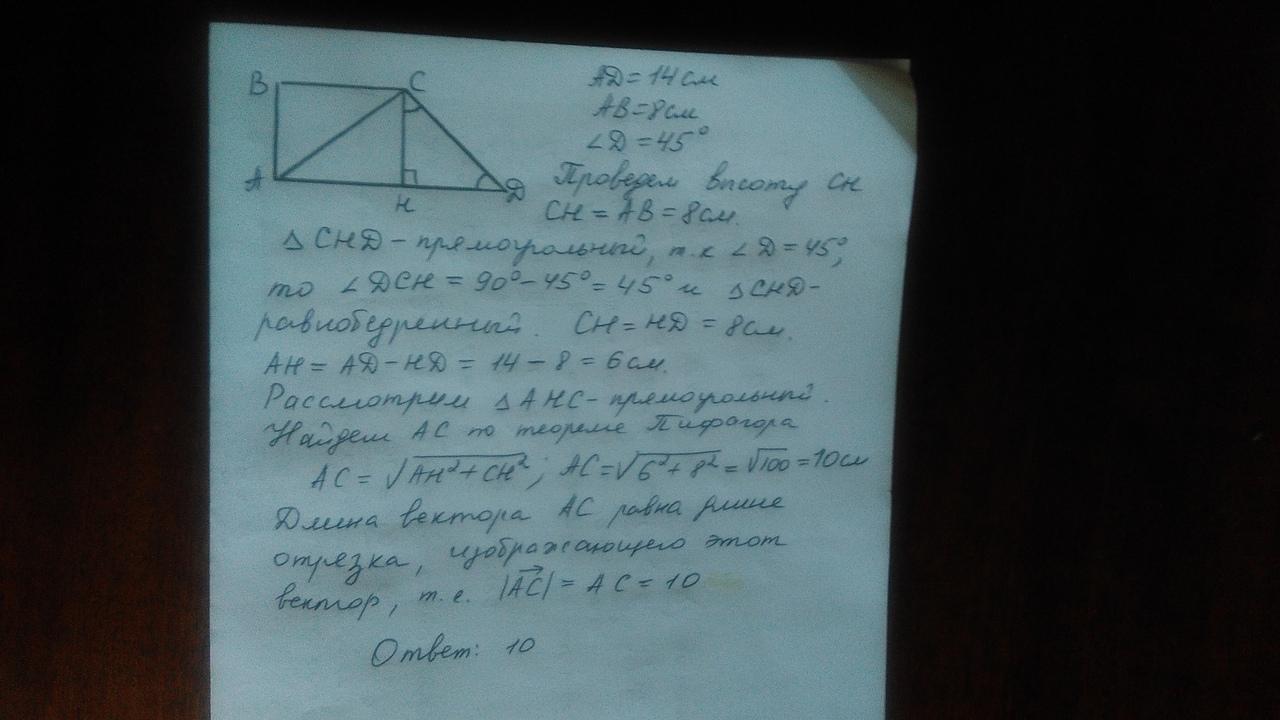 B C
A H D
AD = 14 см
AB = 8 см
∠D = 45°
Проведем высоту CH
CH = AB = 8 см.
△ CHD - прямоугольный, т.к ∠D = 45°,
то ∠DCH = 90° - 45° = 45° и △CHD -
равнобедренный. CH = HD = 8 см.
AH = AD - HD = 14 - 8 = 6 см.
Рассмотрим △ AHC - прямоугольный.
Найдем AC по теореме Пифагора
AC = √AH² + CH² ; AC = √6² + 8² = √100 = 10 см
Длина вектора AC равна длине
отрезка, изображающего этот
вектор, т.е. |AC→| = AC = 10
Ответ: 10